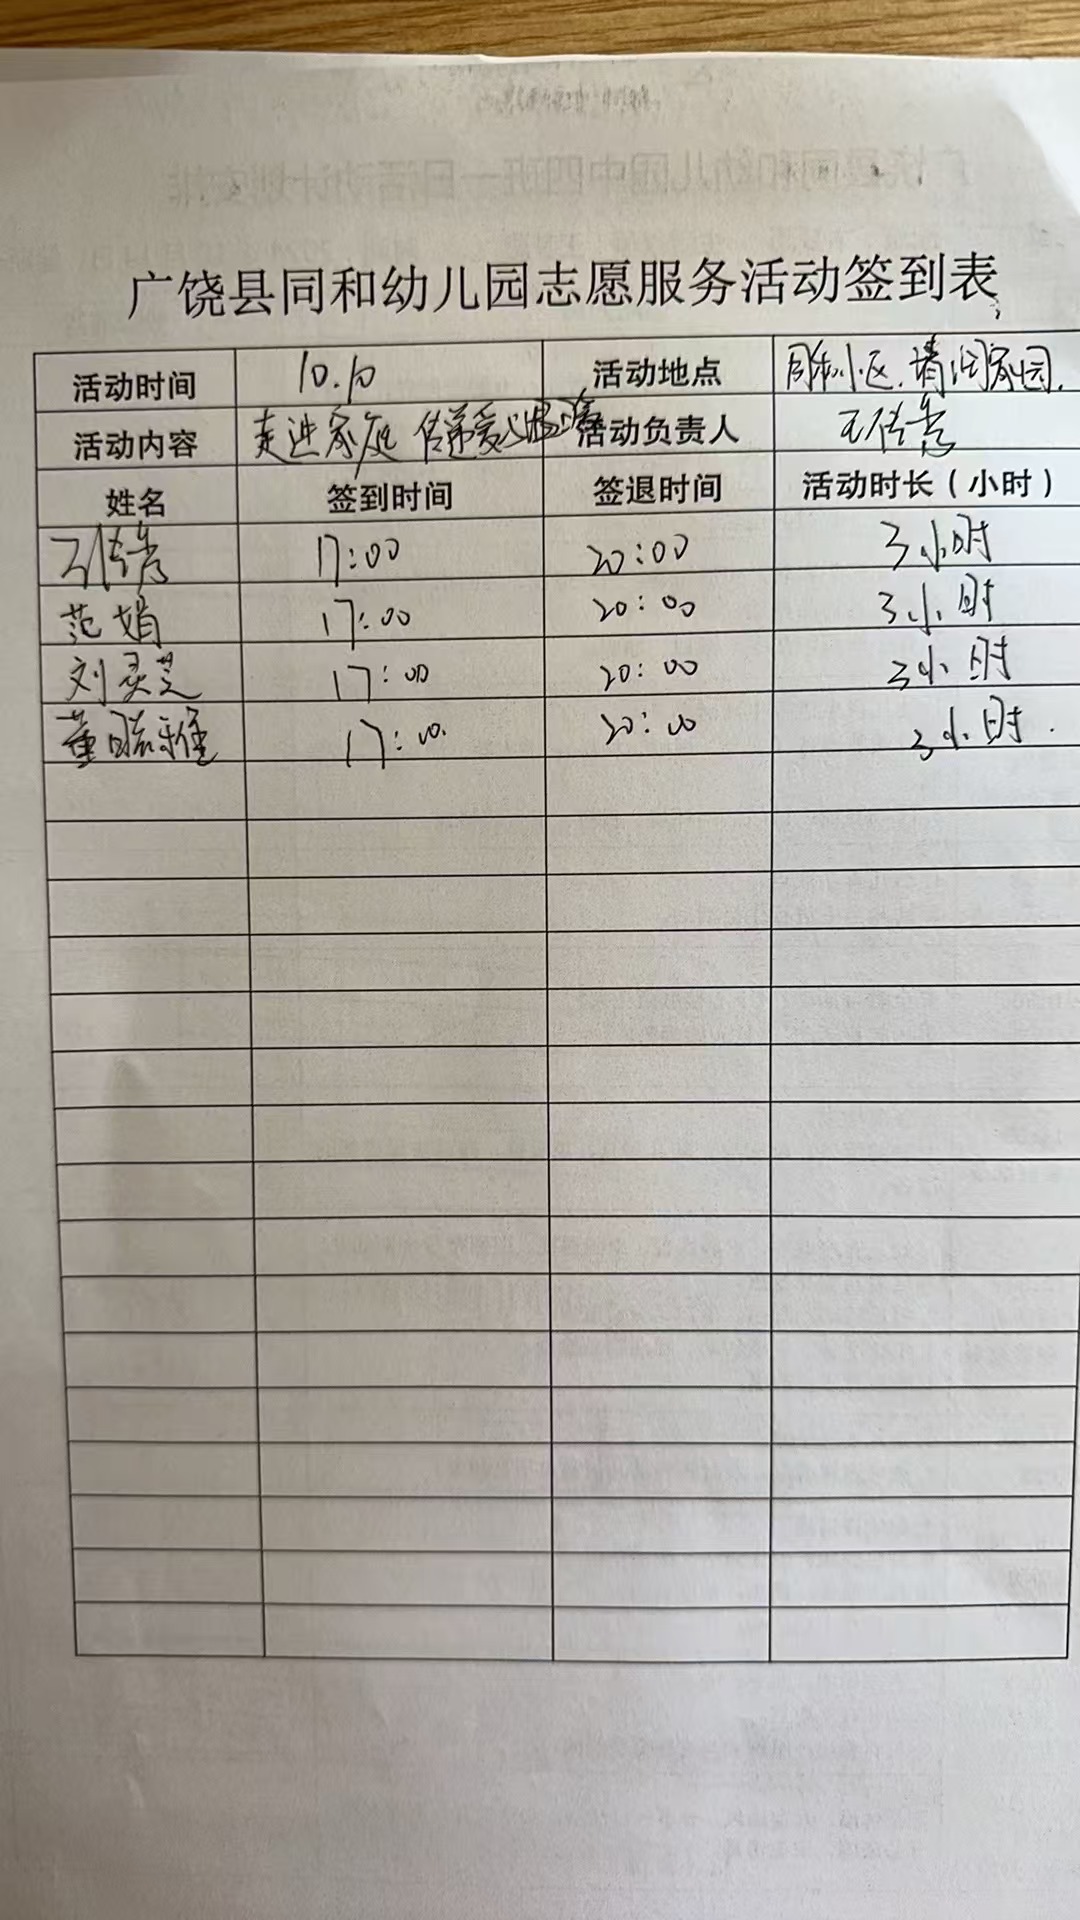 广饶县同和幼儿园志愿服务活动签到表
活动时间 10.10 活动地点 同和小区.清润家园.
活动内容 走进家庭 传递爱心 活动负责人 王传秀
姓名 签到时间 签退时间 活动时长（小时）
王传秀 17:00 20:00 3小时
范娟 17:00 20:00 3小时
刘灵芝 17:00 20:00 3小时
董 雅 17:00. 20:00 3小时.